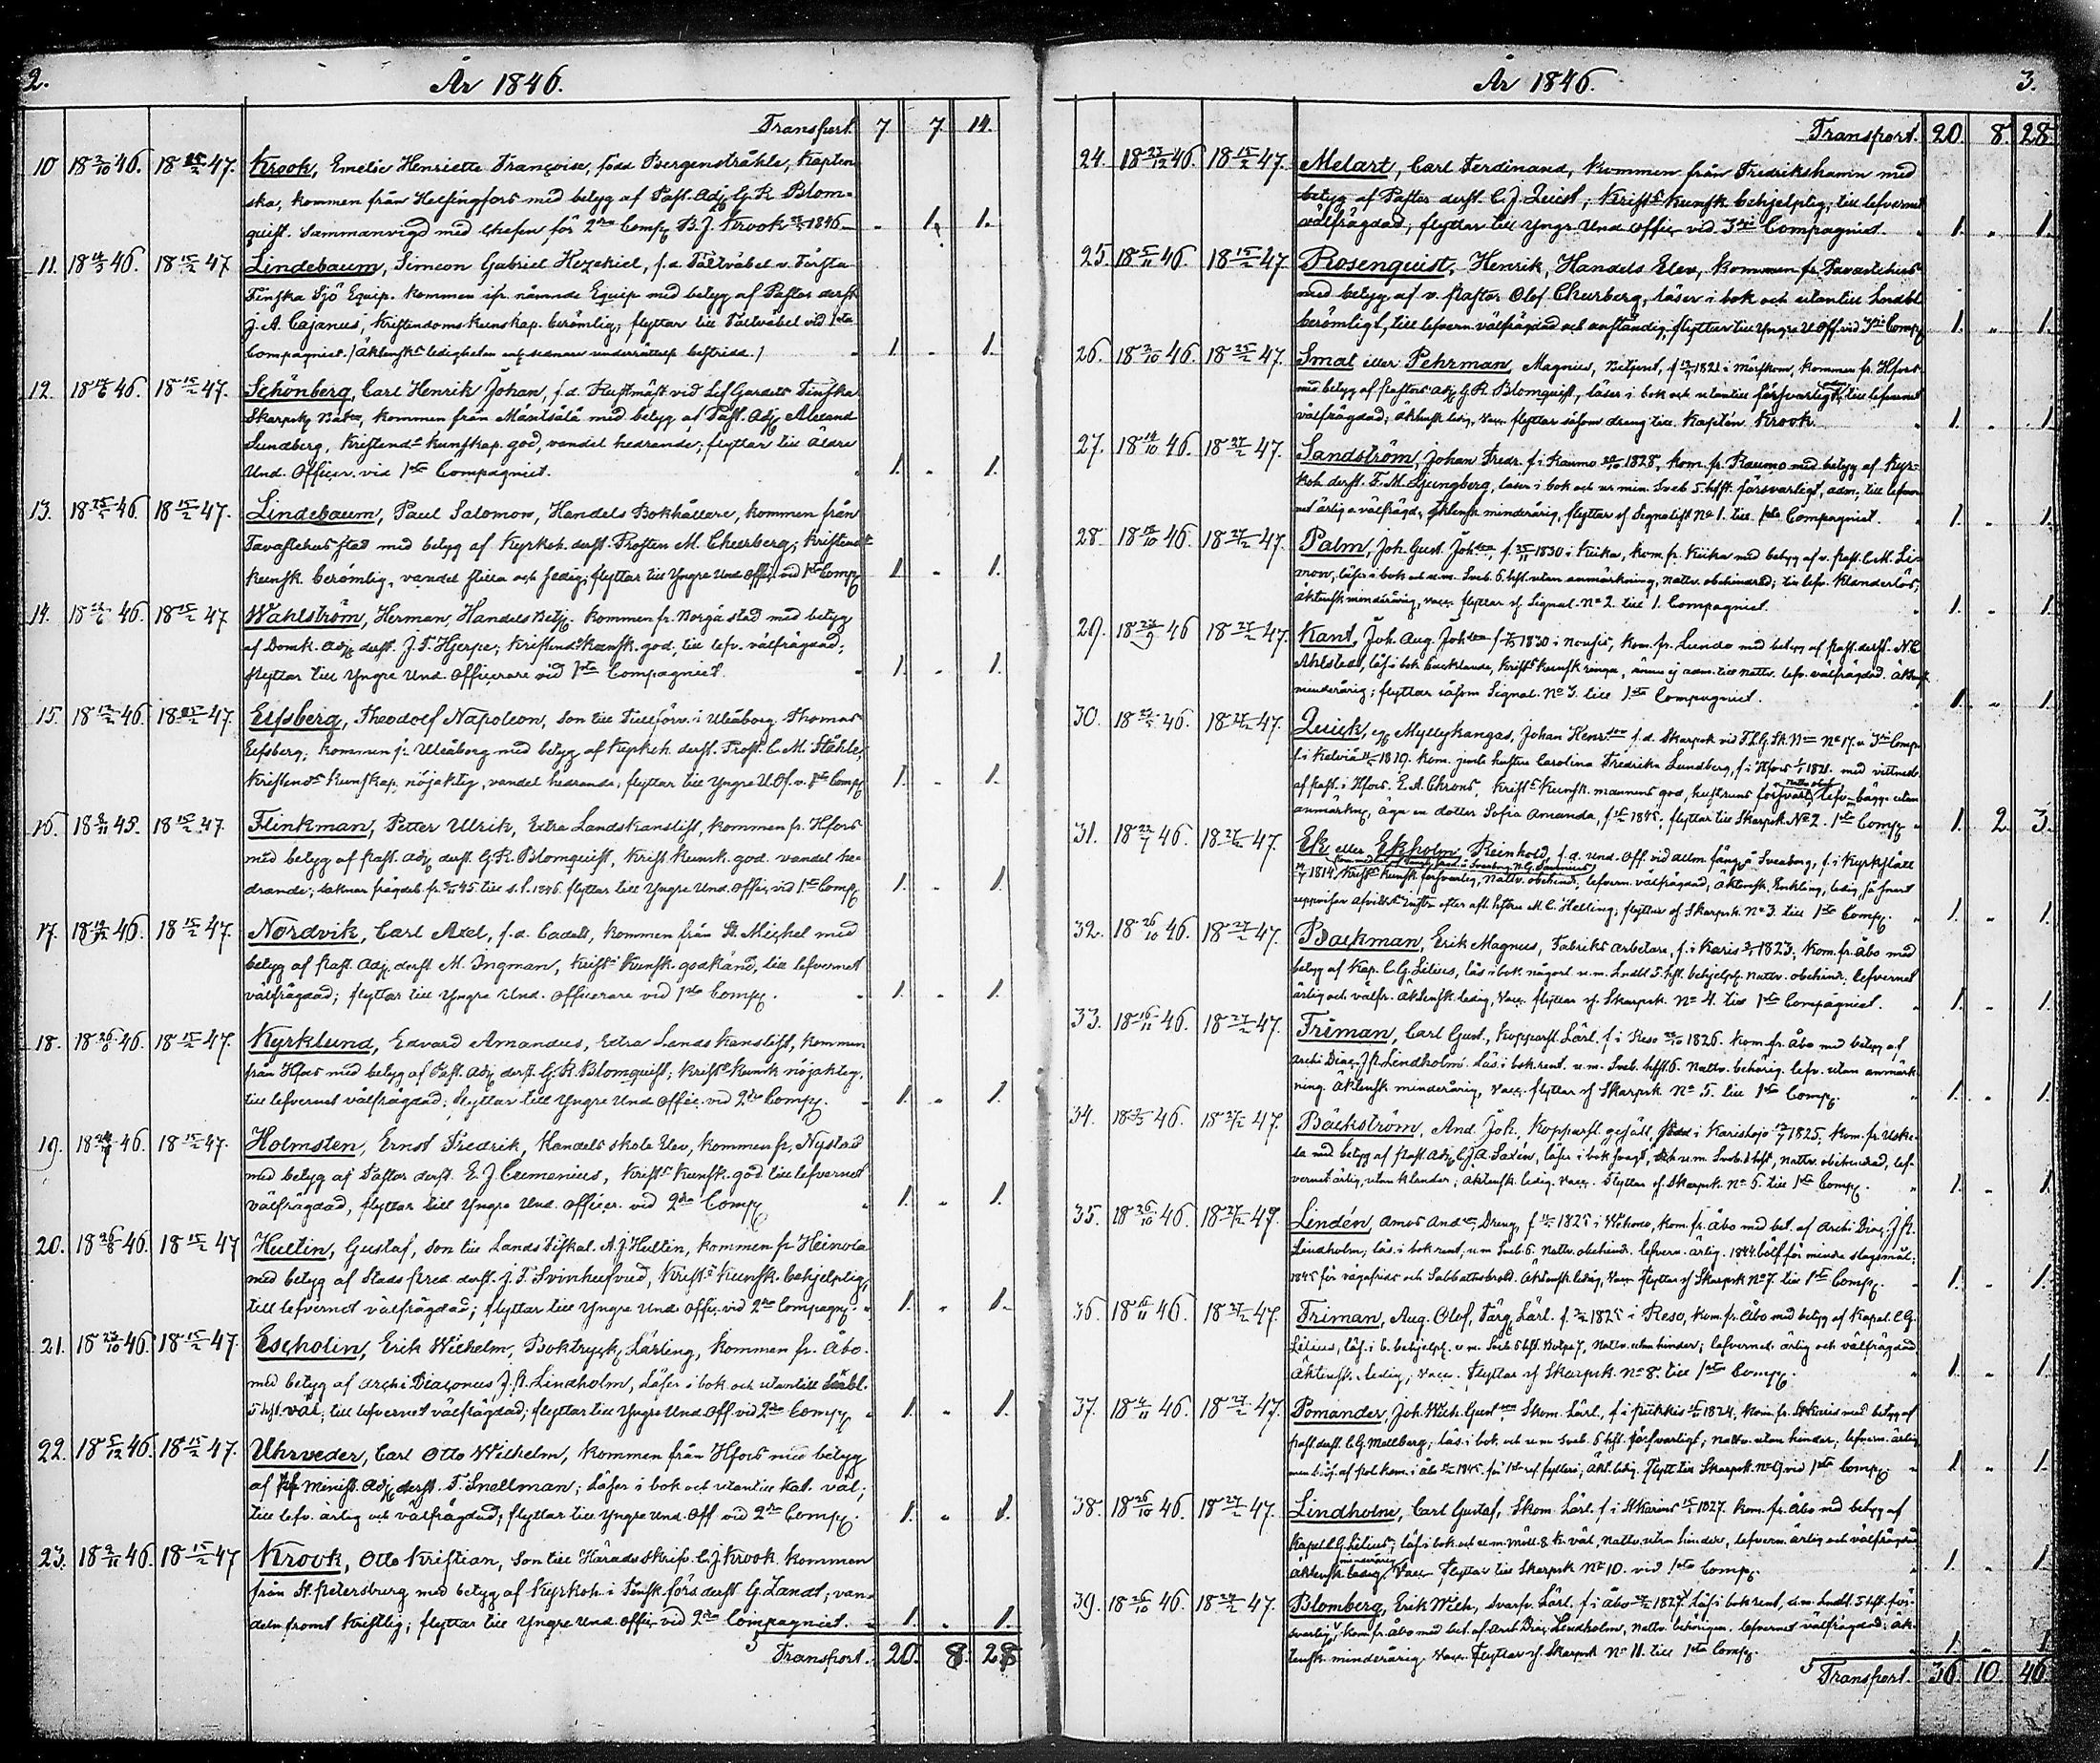 2. År 1846.
Transport. 7 7 14.
10 18 2/10 46. 18 25/2 47. Krook, Emelie Henriette Françoise, född Bergenstråhle, Kaptens
ska, kommen från Helsingfors med betyg af Past. Adj. G. R. Blom-
quist. Sammanvigd med Chefen för 2dra Comp. B. J. Krook 1846 - 1. 1.
11. 46. 18 15/2 47 Lindebaum, Simeon Gabriel Hezekiel, f.d. Fältväbel v. Första
Finska Sjö Equip. kommen ifr. nämnde Equip med betyg af Pastor derst.
J. A. Cajanus, Kristendoms kunskap berömlig; flyttar till Fältväbel vid 1sta
Compagniet. / Äktensk:s ledigheten enl. sednare underrättelse bestridd. / 1. - 1.
12. 46. 18 15/2 47. Schönberg, Carl Henrik Johan, f.d. Rustmäst. vid Lif Gardets Finska
Skarpsk. Bat:n, kommen från Mäntsälä med betyg af Past. Adj.
Lundberg, Kristend:s Kunskap. god, vandel hedrande; flyttar till äldre
Und. Officer. vid 1sta Compagniet. 1. - 1.
13. 46. 18 15/2 47. Lindebaum, Paul Salomon, Handels Bokhållare, kommen från
Tavastehus stad med betyg af Kyrkoh. derst. Prosten M. Churberg; Kristend:s
kunsk. berömlig, vandel stilla och sedig; flyttar till Yngre Und. Offic. vid 1sta Comp. 1 - 1.
14. 46. 18 15/2 47 Wahlström, Herman, Handels Betj. kommen fr. Borgå stad med betyg
af Domk. Adj. derst. J. F. Hjerpe; Kristend:s Kunsk. god, till lefv. välfrägdad;
flyttar till Yngre Und. Officerare vid 1sta Compagniet. 1. - 1.
15. 46. 18 15/2 47. Elfsberg, Theodolf Napoleon, Son till Tullförv. i Uleåborg Thomas
Elfsberg; kommen fr. Uleåborg med betyg af Kyrkoh. derst. Prost. C. M. Ståhle,
Kristend:s Kunskap. nöjaktig, vandel hedrande, flyttar till Yngre U. Of. v. 1sta Comp. 1. - 1.
16. 18 8/11 45. 18 15/2 47. Flinkman, Petter Ulrik, Extra Landskanslist, kommen fr. Hfors
med betyg af past. Adj. derst. G. R. Blomquist, Krist. Kunsk. god. vandel he-
drande; saknar frägdeb. fr. 45 till 1846. flyttar till Yngre Und. Offic. vid 1sta Comp. 1. - 1.
17. 46. 18 15/2 47. Nordvik, Carl Axel, f.d. Cadett, kommen från St. Michel med
betyg af past. Adj. derst. M. Ingman, Krist:s Kunsk. godkänd, till lefvernet
välfrägdad; flyttar till Yngre Und. Officerare vid 1sta Comp. 1. - 1.
18. 46. 18 15/2 47. Kyrklund, Edvard Amandus, Extra Lands Kanslist, kommen
från Hfors med betyg af Past. Adj. derst. G. R. Blomquist; Krist:s Kunsk nöjaktig.
till lefvernet välfrägdad; flyttar till Yngre Und Offic. vid 2dra Comp. 1. - 1.
19. 46. 18 15/2 47. Holmsten, Ernst Fredrik, Handels skole Elev, kommen fr. Nystad
med betyg af Pastor derst. E. J. Cumenius, Krist:s Kunsk. god till lefvernet
välfrägdad, flyttar till Yngre Und. Officer. vid 2dra Comp. 1. - 1.
20. 46. 18 15/2 47 Hultin, Gustaf, Son till Lands Fiskal. A. J. Hultin, kommen fr. Heinola
med betyg af Stads Pred. derst. J. F. Svinhufvud, Krist:s Kunsk. behjelplig,
till lefvernet välfrägdad; flyttar till Yngre Und. Offic. vid 2dra Compagn. 1. - 1.
21. 46. 18 15/2 47. Escholin, Erik Wilhelm, Boktryck. Lärling, kommen fr. Åbo.
med betyg af Archi Diaconus J. A. Lindholm, läser i bok och utantill
5 hft väl; till lefvernet välfrägdad; flyttar till Yngre Und. Off. vid 2dra Comp. 1. - 1.
22. 18 5/12 46. 18 15/2 47. Uhrveder, Carl Otto Wilhelm, kommen från Hfors med betyg
af Minist. Adj. derst. F. Snellman; läser i bok och utantill Kat. väl;
till lefv. ärlig och välfrägdad; flyttar till Yngre Und. Off vid 2dra Comp. 1. - 1.
23. 18 9/11 46. 18 15/2 47 Krook, Otto Kristian, Son till Härads Skrifv. C. J. Krook kommen
från St. Petersburg med betyg af Kyrkoh. i Finsk förs. derst. G. Zandt; van-
deln fromt Kristlig; flyttar till Yngre Und. Offic. vid 2dra Compagniet. 1. - 1.
Transport. 20. 8. 28
År 1846. 3.
Transport. 20. 8. 28.
24. 18 23/12 46. 18 15/2 47. Melart, Carl Ferdinand, kommen från Fredrikshamn med
betyg af Pastor derst. C. J. Quist, Krist:s Kunsk behjelplig, till lefvernet
välfrägdad; flyttar till Yngr. Und. Offic. vid 3dje Compagniet. 1. - 1.
25. 46. 18 15/2 47. Rosenquist, Henrik, Handels Elev, kommen fr. Tavastehus
med betyg af v. Pastor Olof Churberg, läser i bok och utantill
berömligt, till lefvern välfrägdad och anständig, flyttar till Yngre U. Off. vid 3dje Comp 1. - 1.
26. 18 2/10 46. 18 25/2 47. Smal eller Pehrman, Magnus, Betjent, f. 1821 i Mörskom, kommen fr. Hfors
med betyg af Pastors Adj. G. R. Blomquist, läser i bok och utantill försvarligt, till lefvernet
välfrägdad; äktensk ledig, vacc. flyttar såsom dreng till Kaptén Krook 1. - 1
27. 46. 18 27/2 47. Sandström, Johan Fredr. f. i Raumo 1828, kom. fr. Raumo med betyg af Kyr-
koh. derst. F. M. Ljungberg, läser i bok och ur min. Sveb. 5 hfft. försvarligt, adm., till lefver-
net ärlig o välfrägd., äktensk. minderårig, flyttar sf. Signalist No 1. till 1sta Compagniet. 1. - 1
28. 46. 18 27/2 47. Palm, Joh. Gust. Joh:son, f. 1830 i Kuika, kom. fr. Kuika med betyg af v. past. C. M. Li-
mon, läser i bok och u.m. Sveb. 6. hft. utan anmärkning, nattv. obehindrad; till lefv. klanderlös;
äktensk minderårig, vacc. flyttar sf. Signal. No 2. till 1. Compagniet. 1. - 1
29. 46 18 27/2 47. Kant, Joh. Aug. Joh:son f. 1830 i Nousis, kom. fr. Lundo med betyg af past. derst. N. E.
Ahlstedt, läs. i bok hacklande, Krist:s Kunsk ringa, ännu ej adm. till nattv. lefv. välfrägdad. äktensk
minderårig; flyttar såsom Signal. No 3. till 1sta Compagniet. 1 - 1.
30. 46. 18 27/2 47. Quick, eg. Myllykangas, Johan Henr:son f.d. Skarpsk vid No 17. v. 3dje Comp
f. i Kelviå 1819. kom. jemte hustru Carolina Fredrika Lundberg, f. i Hfors 1821. med vittnesb.
af past. i Hfors. E. A. Ehrons, Krist:s Kunsk. mannens god, hustruns försvarl. lefv. bägge utan
anmärkn., äga en dotter Sofia Amanda, f. 1845. flyttar till Skarpsk. No 2. 1sta Comp. 1. 2 3.
31. 46 18 27/2 47. Ek eller Ekholm, Reinhold, f.d. Und. Off. vid allm. fäng. å Sveaborg, f. i Kyrkslätt
1814, Krist:s Kunsk försvarlig, nattv. obehindr. lefvern. välfrägdad, äktensk. Enkling, ledig, så snart
uppvises afvittr. efter afl. hstru M. C. Helling; flyttar sf. Skarpsk. No 3. till 1sta Comp. 1. - 1.
32. 18 26/10 46. 18 27/2 47. Backman, Erik Magnus, Fabriks arbetare, f. i Karis 1823, kom. fr. Åbo med
betyg af Kap. C. G. Lilius, läs i bok någorl. u.m. 5. hft. behjelpl. nattv. obehindr. lefvernet
ärlig och välfr. äktensk. ledig, vacc. flyttar sf. Skarpsk. No 4. till 1sta Compagniet. 1. - 1.
33. 18 16/11 46. 18 27/2 47. Friman, Carl Gust., Kopparsl. Lärl. f. i Reso 1826. kom fr. Åbo med betyg af
Archi Diac. J. A. Lindholm. läs. i bok rent. u.m. Sveb. hfft. 6. Nattv. behörig. lefv. utan anmärk-
ning. Äktensk minderårig, vacc. flyttar sf Skarpsk. No 5. till 1sta Comp. 1. - 1.
34. 46. 18 27/2 47. Bäckström, And. Joh., Kopparsl. gesäll, född i Karislojo 1825, kom. fr. Uske-
la med betyg af past. Adj. C. J. A. Saxén, läser i bok svagt, och u.m. Sveb. hft, nattv. obehindrad, lef-
vernet ärlig, utan klander; äktensk. ledig. Vacc. Flyttar sf. Skarpsk. No 6. till 1sta Comp. 1. - 1.
35. 18 26/10 46. 18 27/2 47. Lindén, Amos And:son, Dreng, f. 1825 i Wehmo, kom. fr. Åbo med bet. af Archi Diac. J. A.
Lindholm, läs. i bok rent, u.m Sveb. 6. Nattv. obehindr. lefvern. ärlig. 1844 bötf. för mindre slagsmål.
1845 för vägafrids och Sabbathsbrott. Äktensk ledig, vacc. flyttar sf Skarpsk No 7. till 1sta Comp. 1. - 1.
36. 46. 18 27/2 47. Friman, Aug. Olof, Färg. Lärl. f. 1825 i Reso, kom. fr. Åbo med betyg af Kapel. C. G.
Lilius, läs. i b. behjelpl. u.m. Sveb. 6 hft. Nattv. utan hinder; lefvernet ärlig och välfrägdad
Äktensk. ledig, vacc. Flyttar sf Skarpsk. No 8. till 1sta Comp. 1. - 1.
37. 46. 18 27/2 47 Pomander, Joh. Wilh. Gust:son Skom. Lärl., f. i Pikkis 1824, kom. fr. St Karins med betyg af
past. derst. C. G. Mellberg, läs. i bok och u.m Sveb. 5 hft. försvarligt; nattv. utan hinder; lefvern. ärlig
men böf. af pol. kam. i Åbo 1845. för 1sta fylleri; äkt. ledig. Flytt. till Skarpsk. No 9 vid 1sta Comp. 1 - 1.
38. 18 26/10 46. 18 27/2 47. Lindholm, Carl Gustaf, Skom. Lärl. f. i St Karins 1827. kom. fr. Åbo med betyg af
Kapel. C. G. Lilius, läs. i bok och u.m. Möll. 8 k. väl, nattv. utan hinder, lefvern. ärlig och välfrägdad
äktensk ledig, minderårig Vacc. flyttar till Skarpsk No 10. vid 1sta Comp. 1. - 1
39. 18 26/10 46. 18 27/2 47. Blomberg, Erik Wilh., Svarfv. Lärl. f. i Åbo 1827. läs. i bok rent, u.m. 5 hft. för-
svarlig, kom fr. Åbo med bet. af Archi Diac. Lindholm, nattv. behörigen. lefvernet välfrägdad; äk-
tensk. minderårig. vacc. Flyttar sf. Skarpsk No 11. till 1sta Comp. 1 - 1
Transport. 36. 10. 46.